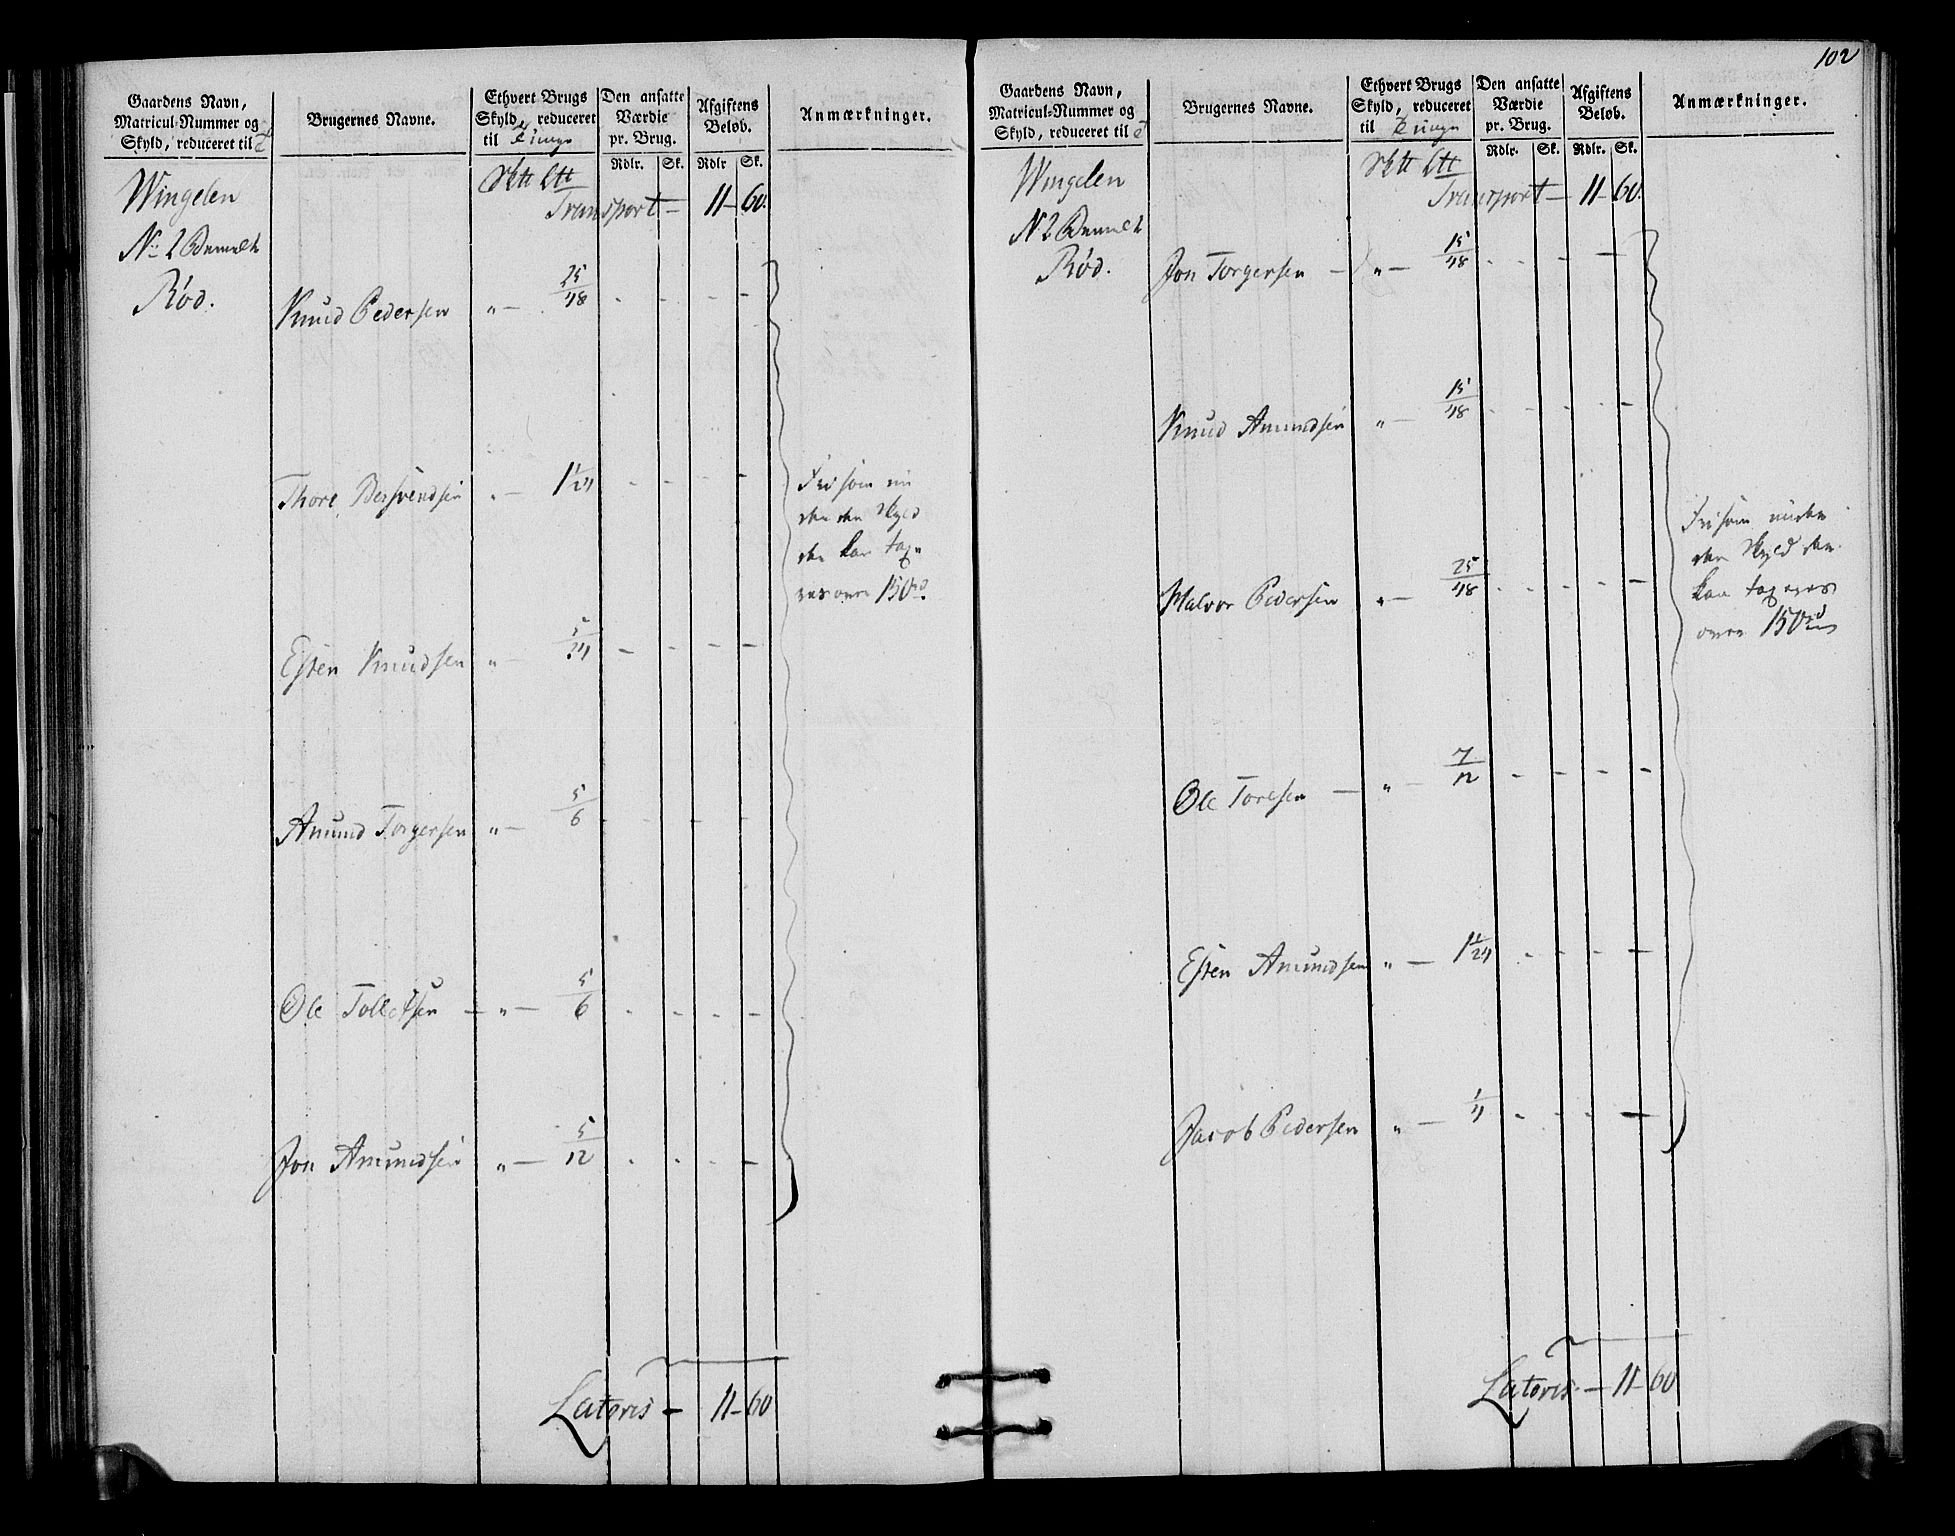 Gaardens Navn,
Matricul-Nummer og
Skyld, reduceret til
Brugernes Navne.
Ethvert Brugs
Skyld, reduceret
til Tunge
Den ansatte
Værdie
pr. Brug.
Rdlr. Sk.
Afgiftens
Beløb.
Rdlr Sk.
Anmærkninger.
Wingelen
Transport – 11 – 60.
No 2
Rød.
Knud Pedersen " – 25/48
Thore " – 1 1/24
Fri som
Skyld
der kan tax
over 150 rd
Esten Knudsen " – 5/24
Amund Torgersen " – 5/6
Ole Tollefsen – " – 5/6
Jon Amundsen " – 5/12
Lateris – 11 – 60
102
Gaardens Navn,
Matricul-Nummer og
Skyld, reduceret til
Brugernes Navne.
Ethvert Brugs
Skyld, reduceret
til Tunge
Den ansatte
Værdie
pr. Brug.
Rdlr. Sk.
Afgiftens
Beløb.
Rdlr. Sk.
Anmærkninger.
Wingelen
Transport – 11 – 60.
N 2
Rød.
Jon Torgersen – " – 15/48
Knud Amundsen " – 15/48
Fri som
Skyld der
kan taxeres
over 150 rd
Halvor Pedersen " – 25/48
Ole Toresen – " – 7/12
Esten Amundsen " – 1 1/24
Jacob Pedersen " – 1/4
Lateris – 11 – 60